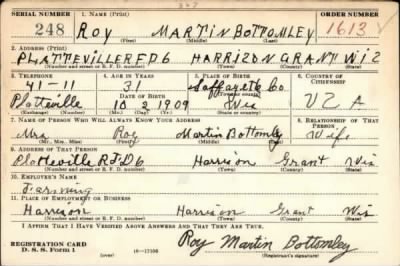 SERIAL NUMBER 1. NAME (Print) ORDER NUMBER
248 Roy MARTIN BOTTOMLEY 1613
(First) (Middle) (Last)
2. ADDRESS (Print)
PLATTEVILLE RFD 6 HARRISON GRANT WIS
(Number and street or R. F. D. number) (Town) (County) (State)
3. TELEPHONE 4. AGE IN YEARS 5. PLACE OF BIRTH 6. COUNTRY OF CITIZENSHIP
41-1 31 Laffayette Co
DATE OF BIRTH (Town or county)
Platteville 10 2 1909 Wis U S A
(Exchange) (Number) (Mo.) (Day) (Yr.) (State or country)
7. NAME OF PERSON WHO WILL ALWAYS KNOW YOUR ADDRESS 8. RELATIONSHIP OF THAT PERSON
Mrs Roy Martin Bottomley Wife
(Mr., Mrs., Miss) (First) (Middle) (Last)
9. ADDRESS OF THAT PERSON
Platteville R.F.D 6 Harrison Grant Wis
(Number and street or R. F. D. number) (Town) (County) (State)
10. EMPLOYER'S NAME
Farming
11. PLACE OF EMPLOYMENT OR BUSINESS
Harrison Harrison Grant Wis
(Number and street or R. F. D. number) (Town) (County) (State)
I AFFIRM THAT I HAVE VERIFIED ABOVE ANSWERS AND THAT THEY ARE TRUE.
REGISTRATION CARD
D. S. S. Form 1 (over) 16—17105 Roy Martin Bottomley
(Registrant's signature)